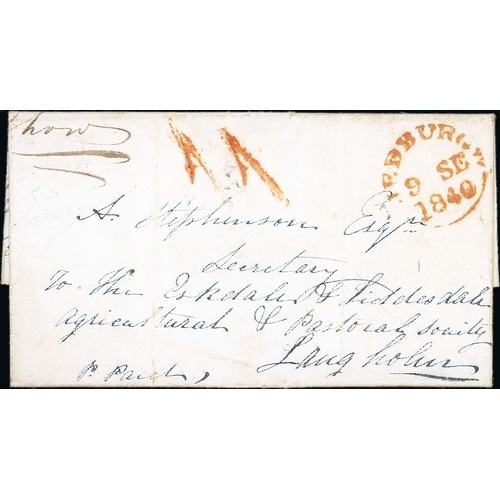 how
JEDBURGH
9 SE
1840
A. Stephenson Esqr
Secretary
To the Eskdale & Liddesdale
Agricultural & Pastoral Society
Langholm
P. Paid,